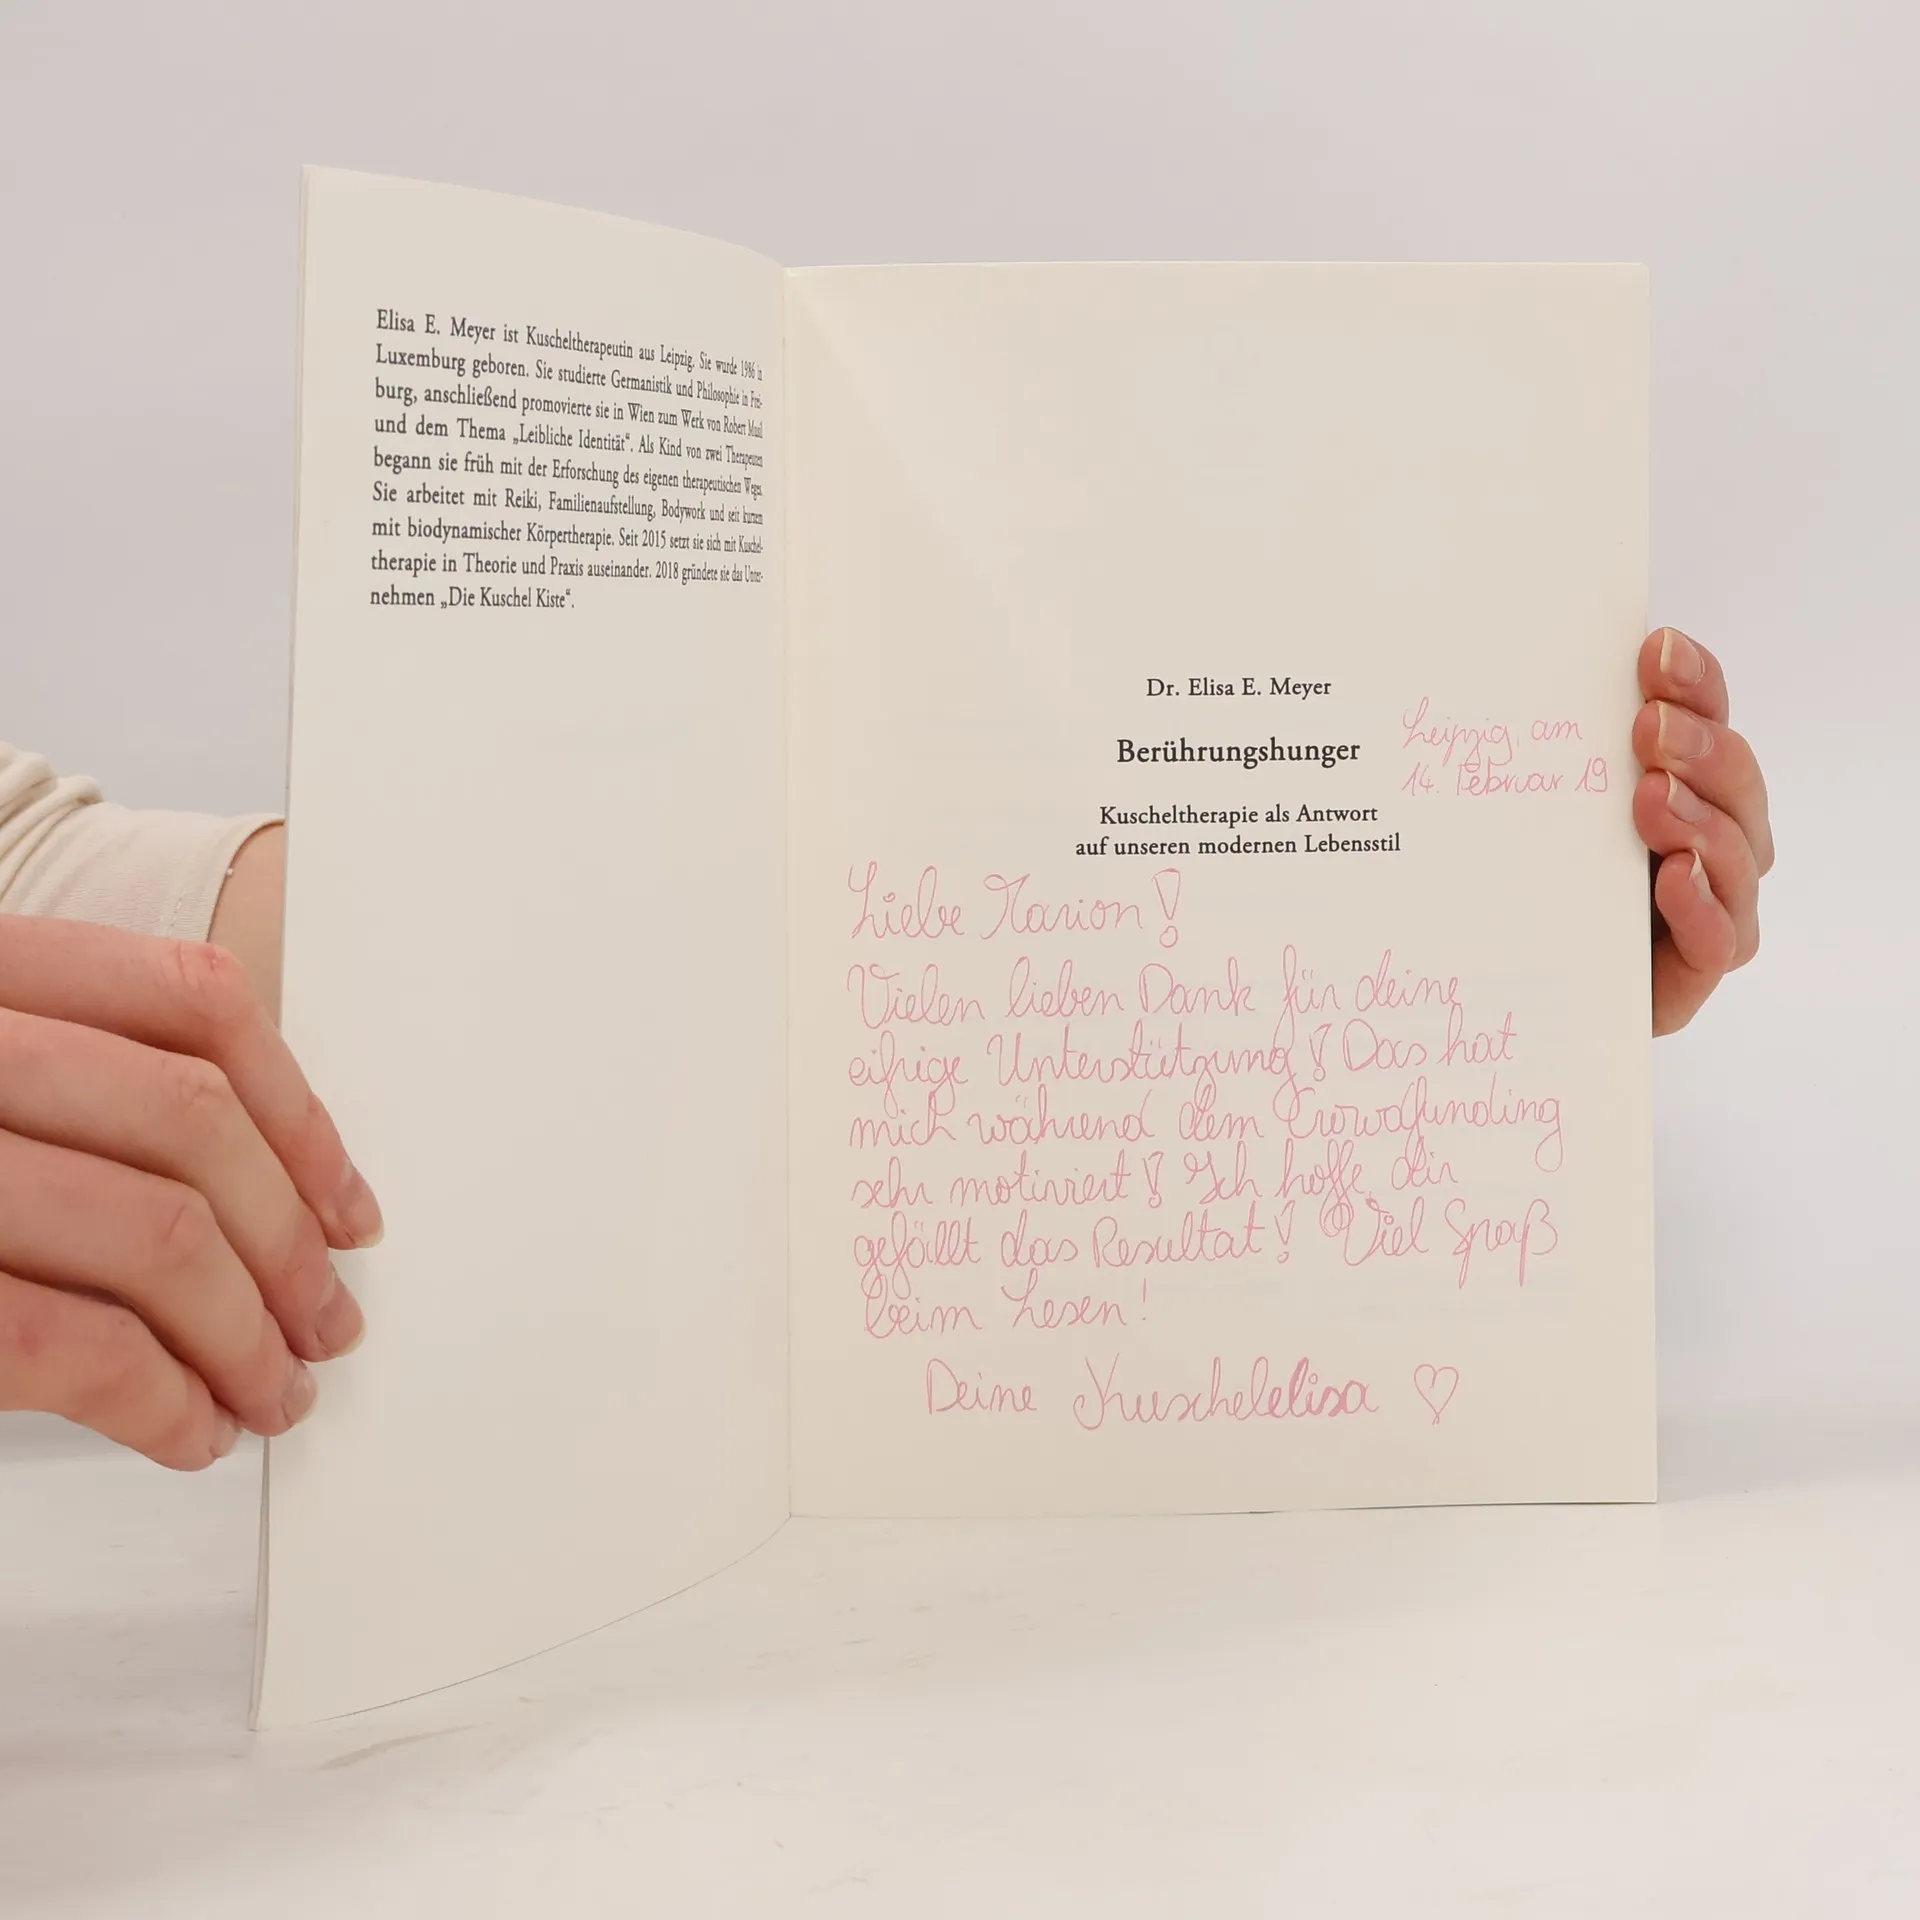 Elisa E. Meyer ist Kuscheltherapeutin aus Leipzig. Sie wurde 1986 in
Luxemburg geboren. Sie studierte Germanistik und Philosophie in Frei-
burg, anschließend promovierte sie in Wien zum Werk von Robert Musil
und dem Thema „Leibliche Identität“. Als Kind von zwei Therapeuten
begann sie früh mit der Erforschung des eigenen therapeutischen Weges.
Sie arbeitet mit Reiki, Familienaufstellung, Bodywork und seit kurzem
mit biodynamischer Körpertherapie. Seit 2015 setzt sie sich mit Kuschel-
therapie in Theorie und Praxis auseinander. 2018 gründete sie das Unter-
nehmen „Die Kuschel Kiste“.
Dr. Elisa E. Meyer
Berührungshunger
Leipzig, am
14. Februar 19
Kuscheltherapie als Antwort
auf unseren modernen Lebensstil
Liebe Marion!
Vielen lieben Dank für deine
eifrige Unterstützung! Das hat
mich während dem Crowdfunding
sehr motiviert! Ich hoffe, dir
gefällt das Resultat! Viel Spaß
beim Lesen!
Deine Kuschelelisa ♡